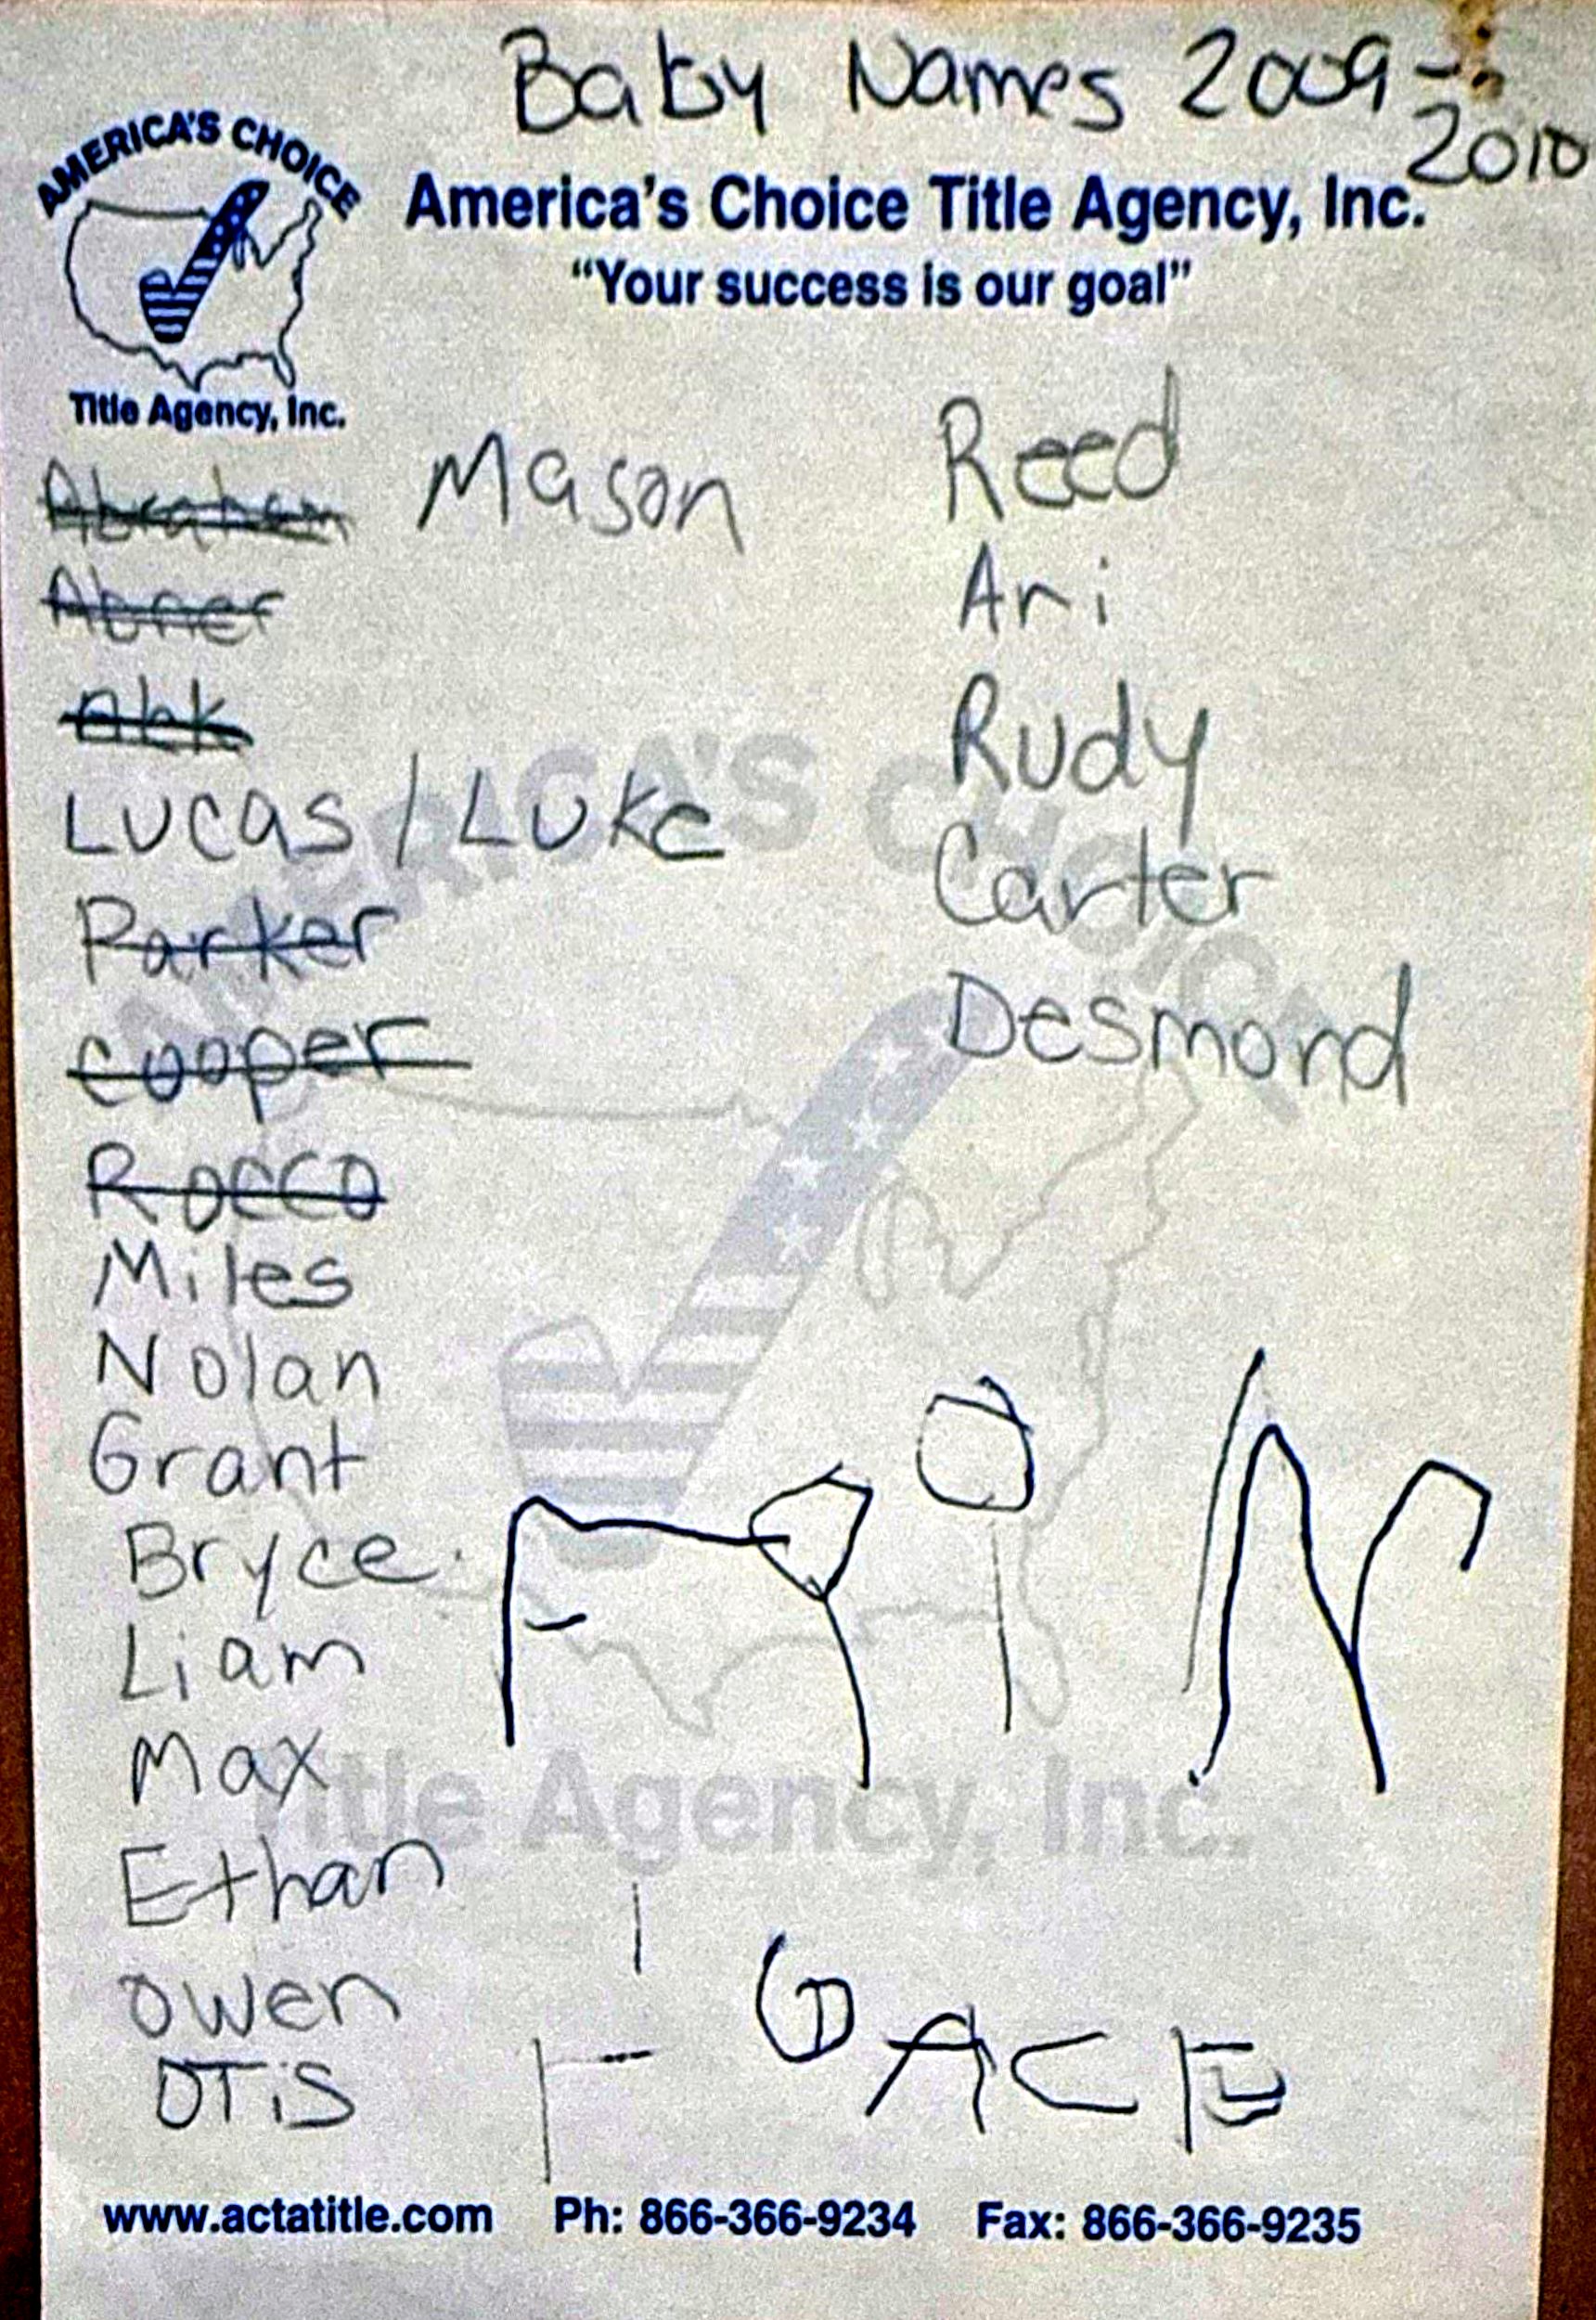 Baby Names 2009-
2010
AMERICA'S CHOICE
Title Agency, Inc.
America's Choice Title Agency, Inc.
"Your success is our goal"
Abraham
Abner
Lucas / Luke
Parker
Cooper
Rocco
Miles
Nolan
Grant
Bryce
Liam
Max
Ethan
Owen
OTiS
Mason
Reed
Ari
Rudy
Carter
Desmond
AMERICA'S CHOICE
Title Agency, Inc.
ACE
www.actatitle.com Ph: 866-366-9234 Fax: 866-366-9235